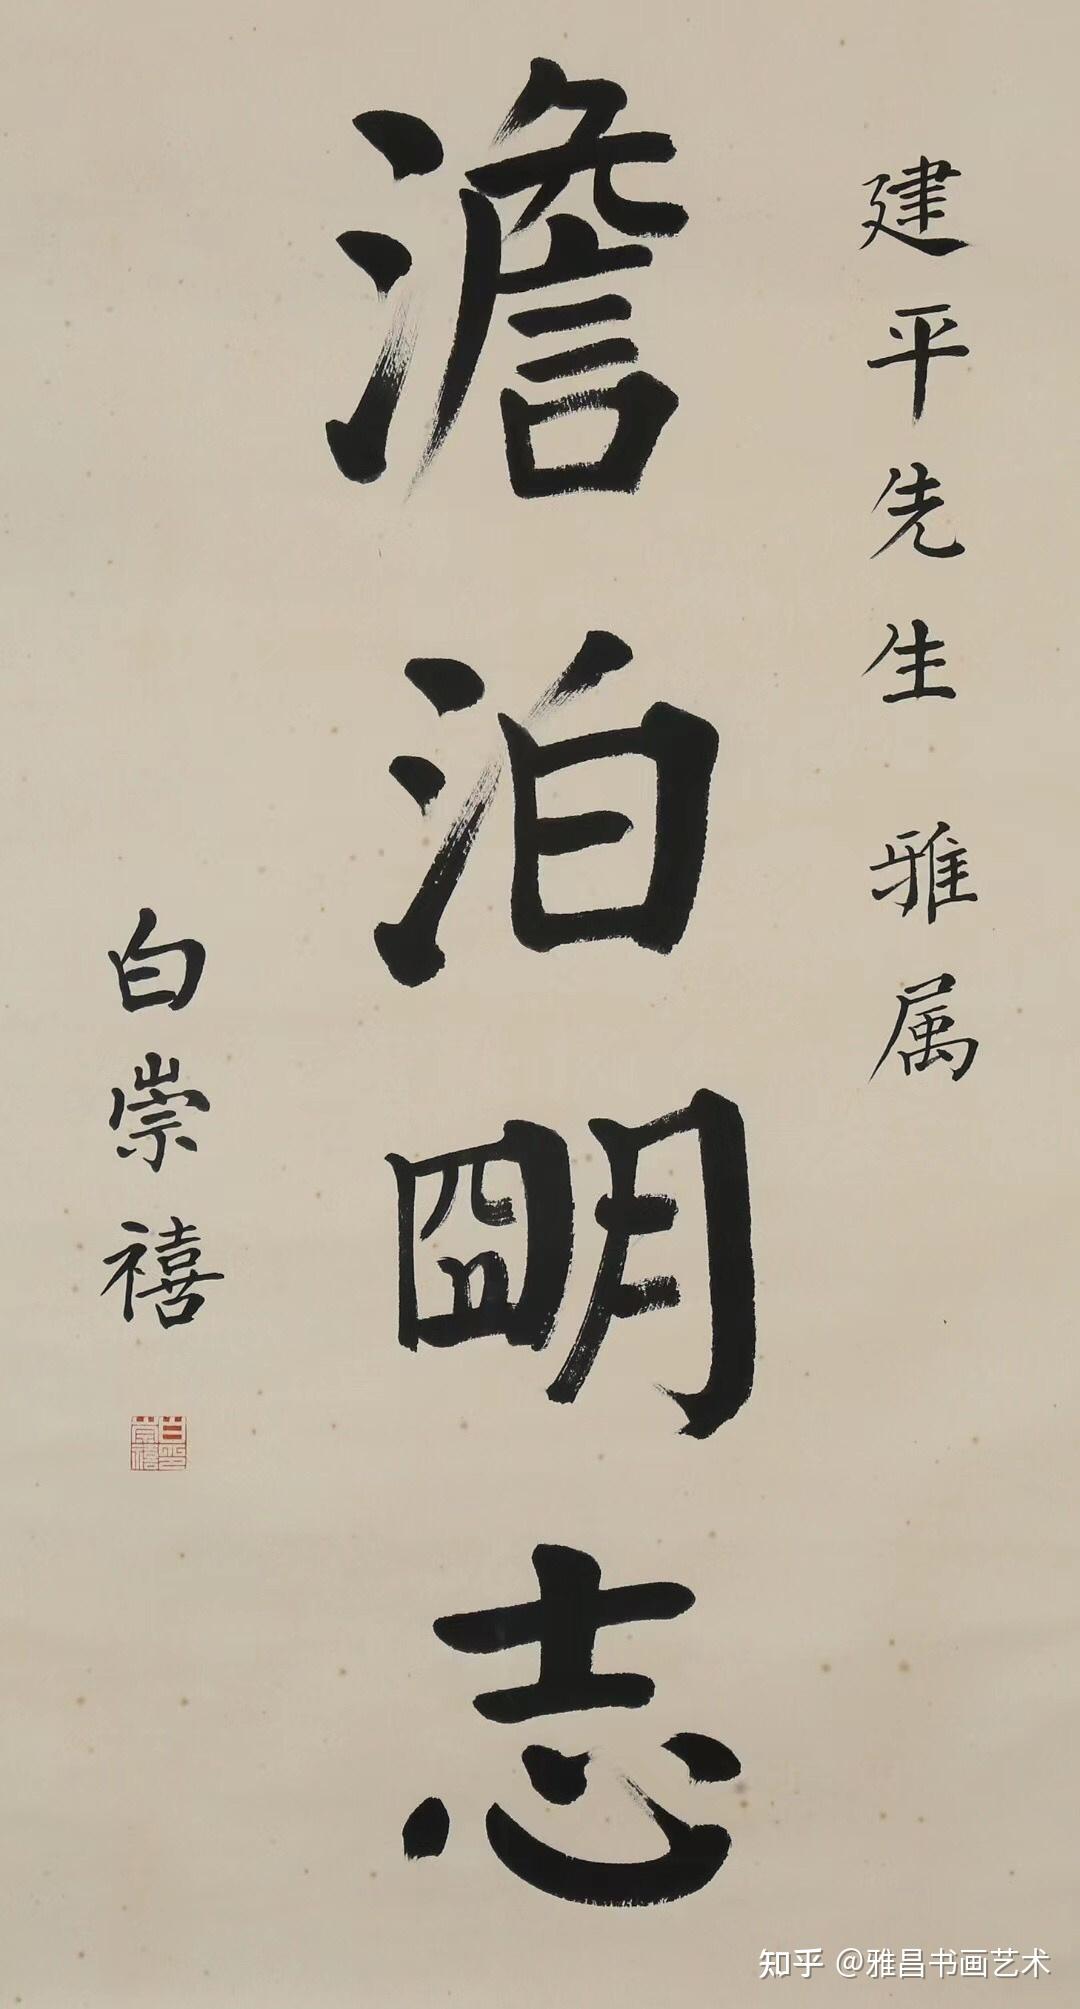 建平先生 雅属
澹泊朙志
白崇禧
白崇禧印
知乎 @雅昌书画艺术